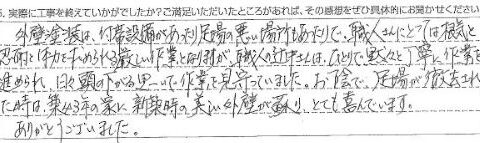 5. 実際に工事を終えていかがでしたか?ご満足いただいたところがあれば、その感想をぜひ具体的にお書きください
外壁塗装は、付帯設備があったり足場の悪い場所もあったりで、職人さんにとっては根気と
忍耐と体力を求められる厳しい作業となりますが、職人の辻本さんは、ひとりで黙々と丁寧に作業を
進められ、日々頭の下がる思いで作業を見守っていました。お陰で、足場が撤去され
た時は、築43年の家に新築時の美しい外壁が蘇り、とても喜んでいます。
ありがとうございました。